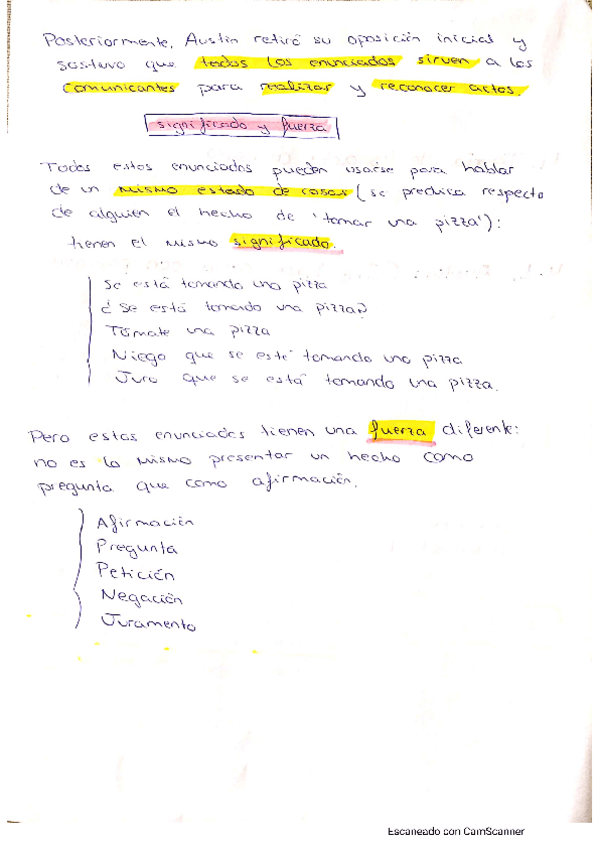 Posteriormente, Austin retiró su oposición inicial y
sostuvo que todos los enunciados sirven a los
comunicantes para realizar y reconocer actos.
significado y fuerza
Todos estos enunciados pueden usarse para hablar
de un mismo estado de cosas (se predica respecto
de alguien el hecho de 'tomar una pizza'):
tienen el mismo significado.
Se está tomando una pizza
¿Se está tomando una pizza?
Tómate una pizza
Niego que se esté tomando una pizza
Juro que se está tomando una pizza.
Pero estos enunciados tienen una fuerza diferente:
no es lo mismo presentar un hecho como
pregunta que como afirmación.
Afirmación
Pregunta
Petición
Negación
Juramento
Escaneado con CamScanner